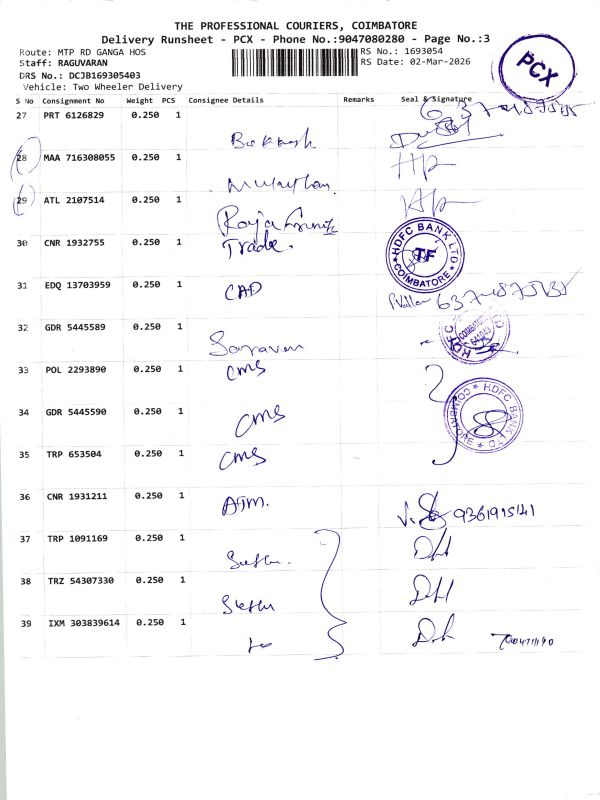 THE PROFESSIONAL COURIERS, COIMBATORE
Delivery Runsheet - PCX - Phone No.:9047080280 - Page No.:3
Route: MTP RD GANGA HOS
RS No.: 1693054
Staff: RAGUVARAN
RS Date: 02-Mar-2026
DRS No.: DCJB169305403
Vehicle: Two Wheeler Delivery
PCX
S No Consignment No Weight PCS Consignee Details Remarks Seal & Signature
27 PRT 6126829 0.250 1
28 MAA 716308055 0.250 1
29 ATL 2107514 0.250 1
Raja
30 CNR 1932755 0.250 1 Trade.
HDFC BANK LTD TF COIMBATORE
31 EDQ 13703959 0.250 1 CAD
32 GDR 5445589 0.250 1
Saravan
33 POL 2293890 0.250 1 CMS
34 GDR 5445590 0.250 1 CMS
HDFC BANK LTD COIMBATORE
35 TRP 653504 0.250 1 CMS
36 CNR 1931211 0.250 1 ATM.
37 TRP 1091169 0.250 1
38 TRZ 54307330 0.250 1
39 IXM 303839614 0.250 1